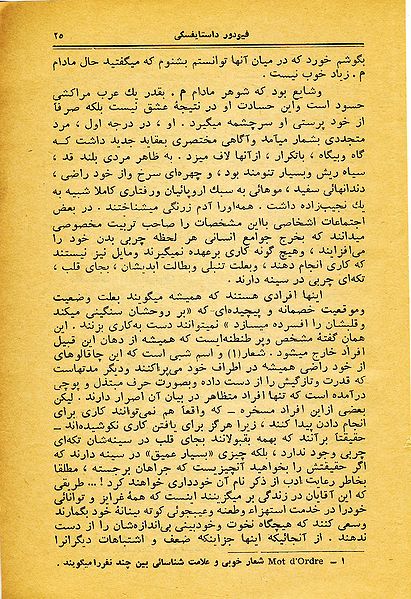 فیودور داستایفسکی ۲۵
بگوشم خورد که در میان آنها توانستم بشنوم که میگفتید حال مادام
م . زیاد خوب نیست .
وشایع بود که شوهر مادام م . بقدر یك عرب مراکشی
حسود است واین حسادت او در نتیجهٔ عشق نیست بلکه صرفا
از خود پرستی او سرچشمه میگیرد . او ، در درجه اول ، مرد
متجددی بشمار میآمد وآگاهی مختصری بعقاید جدید داشت که
گاه وبیگاه ، باتکرار ، ازآنها لاف میزد . به ظاهر مردی بلند قد ،
سیاه ریش وبسیار تنومند بود ، و چهره‌ای سرخ واز خود راضی ،
دندانهائی سفید ، موهائی به سبك اروپائیان ورفتاری کاملا شبیه به
یك نجیب‌زاده داشت . همه‌اورا آدم زرنگی میشناختند . در بعض
اجتماعات اشخاصی بااین مشخصات را صاحب تربیت مخصوصی
میدانند که بخرج جوامع انسانی هر لحظه چربی بدن خود را
می‌افزایند ، وهیچ گونه کاری برعهده نمیگیرند ومایل نیز نیستند
که کاری انجام دهند ، وبعلت تنبلی وبطالت ابدیشان ، بجای قلب ،
تکه‌ای چربی در سینه دارند .
اینها افرادی هستند که همیشه میگویند بعلت وضعیت
وموقعیت خصمانه و پیچیده‌ای که «بر روحشان سنگینی میکند
وقلبشان را افسرده میسازد » نمیتوانند دست به‌کاری بزنند . این
همان گفتهٔ مشخص وپر طنطنه‌ایست که همیشه از دهان این قبیل
افراد خارج میشود . شعار(۱) و اسم شبی است که این چاقالوهای
از خود راضی همیشه در اطراف خود می‌پراکنند ودیگر مدتهاست
که قدرت وتازگیش را از دست داده وبصورت حرف مبتذل و پوچی
درآمده است که تنها افراد متظاهر در بیان آن اصرار دارند . لیکن
بعضی ازاین افراد مسخره ــ که واقعا هم نمی‌توانند کاری برای
انجام دادن پیدا کنند ، زیرا هرگز برای یافتن کاری نکوشیده‌اند ــ
حقیقتا برآنند که بهمه بقبولانند بجای قلب در سینه‌شان تکه‌ای
چربی وجود ندارد ، بلکه چیزی «بسیار عمیق» در سینه دارند که
اگر حقیقتش را بخواهید آنچیزیست که جراهان برجسته ، مطلقا
بخاطر رعایت ادب از ذکر نام آن خودداری خواهند کرد !... طریقی
که این آقایان در زندگی بر میگزینند اینست که همهٔ غرایز و توانائی
خودرا در خدمت استهزاء وطعنه وعیبجوئی کوته بینانهٔ خود بگمارند
وسعی کنند که هیچگاه نخوت وخودبینی بی‌اندازه‌شان را از دست
ندهند . از آنجائیکه اینها جزاینکه ضعف و اشتباهات دیگرانرا
۱ ــ Mot d'Ordre شعار خوبی و علامت شناسائی بین چند نفررا میگویند .